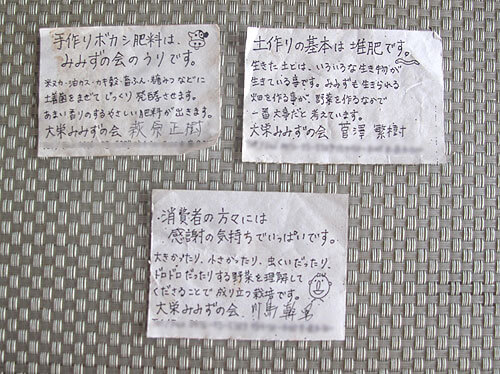 手作りボカシ肥料は、
みみずの会のうりです。
米ヌカ・油カス・カキ殻・畜ふん・糖みつなどに
土着菌をまぜてじっくり発酵させます。
あまい香りのするやさしい肥料が出きます。
大栄みみずの会 萩原正樹
土作りの基本は堆肥です。
生きた土とは、いろいろな生き物が
生きている事です。みみずも生きられる
畑を作る事が、野菜を作るなかで
一番大事だと考えています。
大栄みみずの会 菅澤繁樹
消費者の方々には
感謝の気持ちでいっぱいです。
大きかったり、小さかったり、虫くいだったり、
ドロドロだったりする野菜を理解して
くださることで成り立つ栽培です。
大栄みみずの会 川島